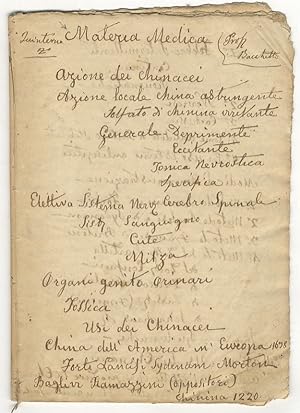 Quinterno 2º
Materia Medica (Prof Bacchetti
Azione dei Chinacei
Azione locale China astringente
Solfato di chinina irritante
Generale Deprimente
Eccitante
Tonica Nevrostica
Specifica
Elettiva Sistema Nerv. Cerebro Spinale
Sist. Sanguigno
Cute
Milza
Organi genito orinari
Tossica
Usi dei Chinacei
China dell' America in Europa 1638
Torti Lancisi Sydenam Morton
Baglivi Ramazzini (oppositore)
Chinina 1820